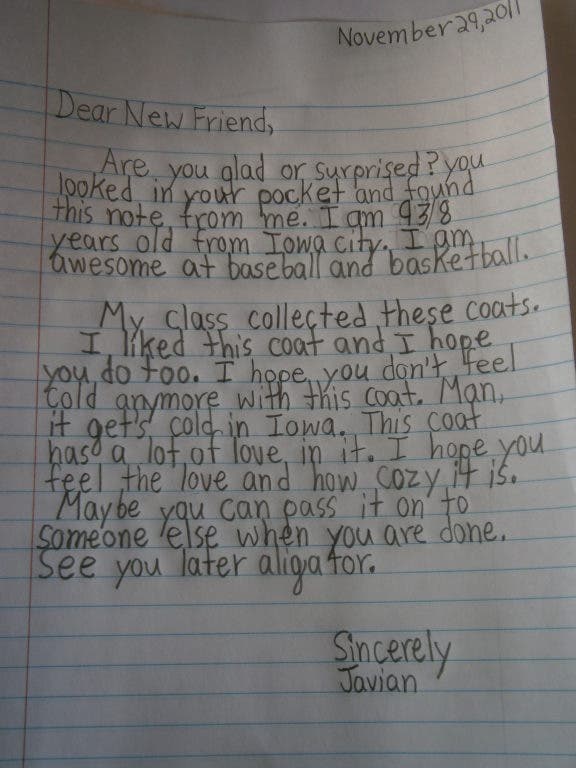 November 29, 2011
Dear New Friend,
Are you glad or surprised? you
looked in your pocket and found
this note from me. I am 9 3/8
years old from Iowa city. I am
awesome at baseball and basketball.
My class collected these coats.
I liked this coat and I hope
you do too. I hope you don't feel
cold anymore with this coat. Man,
it get's cold in Iowa. This coat
has a lot of love in it. I hope you
feel the love and how cozy it is.
Maybe you can pass it on to
someone else when you are done.
See you later aligator.
Sincerely
Javian